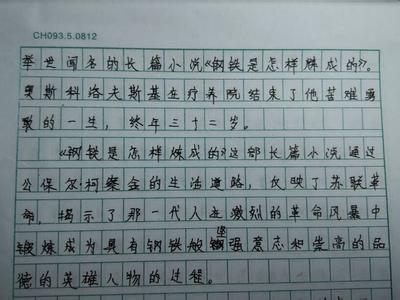 CH093.5.0812
举世闻名的长篇小说《钢铁是怎样炼成的》。
奥斯科洛夫斯基在疗养院结束了他苦难勇
敢的一生，终年三十二岁。
《钢铁是怎样炼成的》这部长篇小说通过
公保尔·柯察金的生活道路，反映了苏联革
命，揭示了那一代人在激烈的革命风暴中
锻炼成为具有钢铁般坚强意志和崇高的品
德的英雄人物的过程。